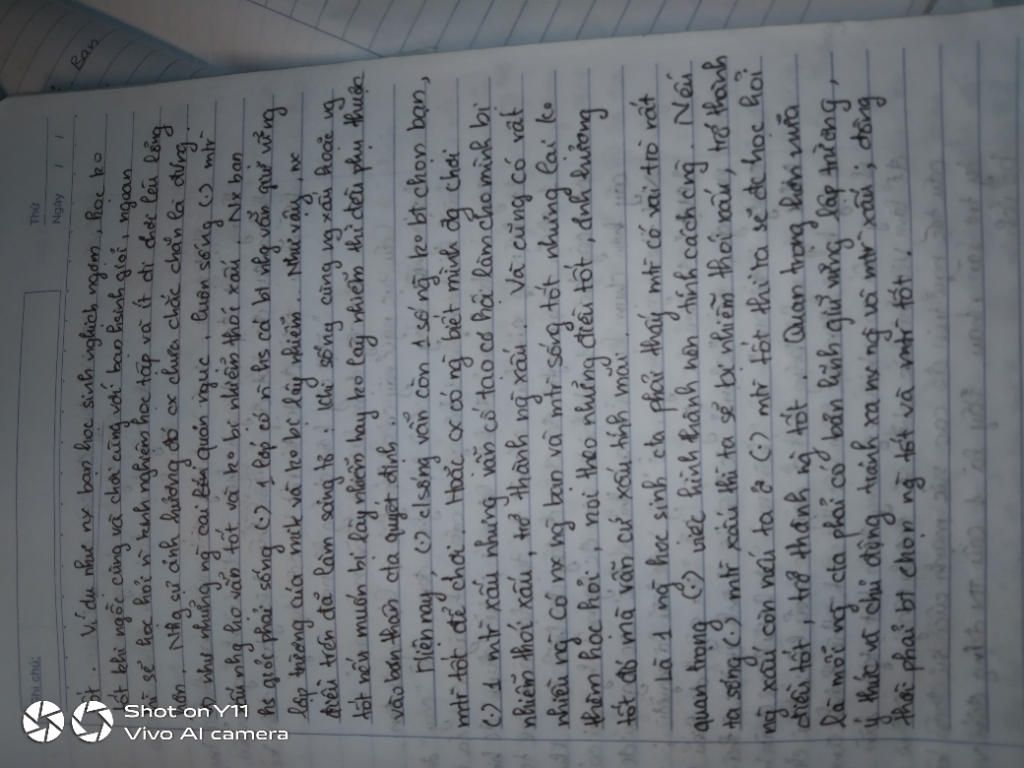 Ban
Thứ
Ngày / /
Ghi chú:
tốt. Ví dụ như nx bạn học sinh nghịch ngợm, học ko
tốt khi ngồi cùng và chơi cùng với bạn hành giỏi, ngoan
thì sẽ học hỏi n` kinh nghiệm học tập và ít đi được lêu lổng
hơn. Nhg sự ảnh hưởng đó cx chưa chắc chắn là đúng.
Vì như những ng oai quán ngục, luôn sống (.) mtr
xấu nhg họ vẫn tốt và ko bị nhiễm thói xấu. Nx bạn
hs giỏi phải sống (.) 1 lớp có n` hs cá bị nhg vẫn giữ vững
lập trường của mik và ko bị lây nhiễm. Như vậy, nx
điều trên đã làm sáng tỏ. Khi sống cùng ng xấu hoặc ng
tốt nếu muốn bị lây nhiễm hay ko lây nhiễm thì đều phụ thuộc
vào bản thân cta quyết định.
Hiện nay (.) c/sống vẫn còn 1 số ng ko bt chọn bạn,
mtr tốt để chơi. Hoặc cx có ng biết mình đg chơi
(.) 1 mtr xấu nhưng vẫn cố tạo cơ hội làm cho mình bị
nhiễm thói xấu, trở thành ng xấu. Và cũng có rất
nhiều ng có nx ng bạn và mtr sống tốt nhưng lại ko
thèm học hỏi, noi theo những điều tốt, ảnh hưởng
tốt đó mà vẫn cứ xấu tính mãi.
Là 1 ng học sinh cta phải thấy mtr có vai trò rất
quan trọng (.) việc hình thành nên tính cách của ng. Nếu
ta sống (.) mtr xấu thì ta sẽ bị nhiễm thói xấu, trở thành
ng xấu còn nếu ta ở (.) mtr tốt thì ta sẽ dc học hỏi
điều tốt, trở thành ng tốt. Quan trọng hơn nữa
là mỗi ng cta phải có bản lĩnh giữ vững lập trường,
ý thức và chủ động tránh xa nx ng và mtr xấu, đồng
thời phải bt chọn ng tốt và mtr tốt.
Shot on Y11
Vivo AI camera